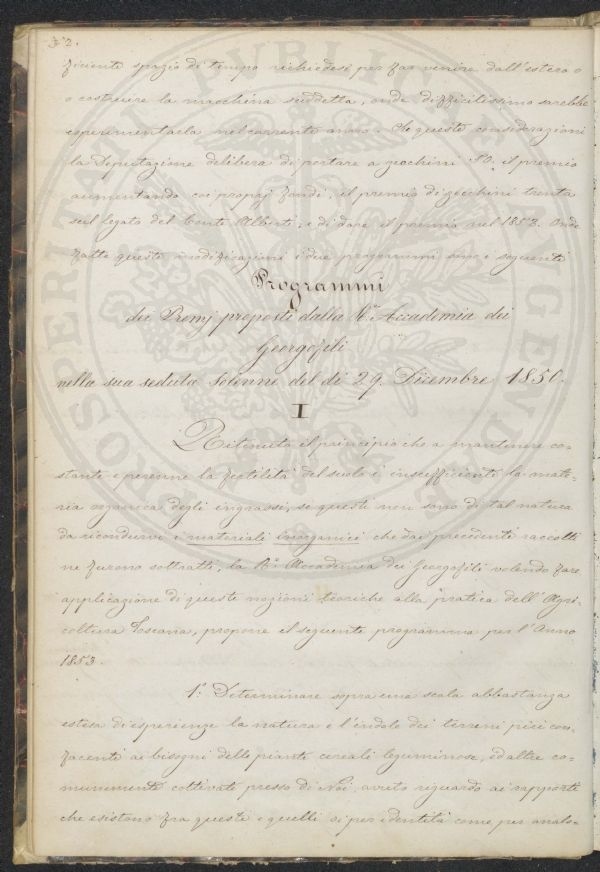 32.
ficiente spazio di tempo richiedesi per far venire dall'estero o
o costruire la macchina suddetta, onde difficilissimo sarebbe
esperimentarla nel corrente anno. Per queste considerazioni
la Deputazione delibera di portare a zecchini 50. il premio
aumentando coi proprj fondi, il premio di zecchini trenta
sul legato del Conte Alberti, e di dare il premio nel 1853. Onde
fatte queste modificazioni i due programmi sono i seguenti
Programmi
dei Premj proposti dalla R.e Accademia dei
Georgofili
nella sua seduta solenne del dì 29. Dicembre 1850.
I
Ritenuto il principio che a mantenere co-
stante e perenne la fertilità del suolo è insufficiente la mate-
ria organica degli ingrassi, se questi non sono di tal natura
da ricondurvi i materiali inorganici che dai precedenti raccolti
ne furono sottratti, la R.e Accademia dei Georgofili volendo fare
applicazione di queste nozioni teoriche alla pratica dell'Agri-
coltura Toscana, propone il seguente programma per l'Anno
1853.
1.° Determinare sopra una scala abbastanza
estesa di esperienze la natura e l'indole dei terreni più con-
facenti ai bisogni delle piante cereali leguminose, ed altre co-
munemente coltivate presso di Noi, avuto riguardo ai rapporti
che esistono fra queste e quelli sì per identità come per analo-
PROSPERITATI PVBLICAE AVGENDAE